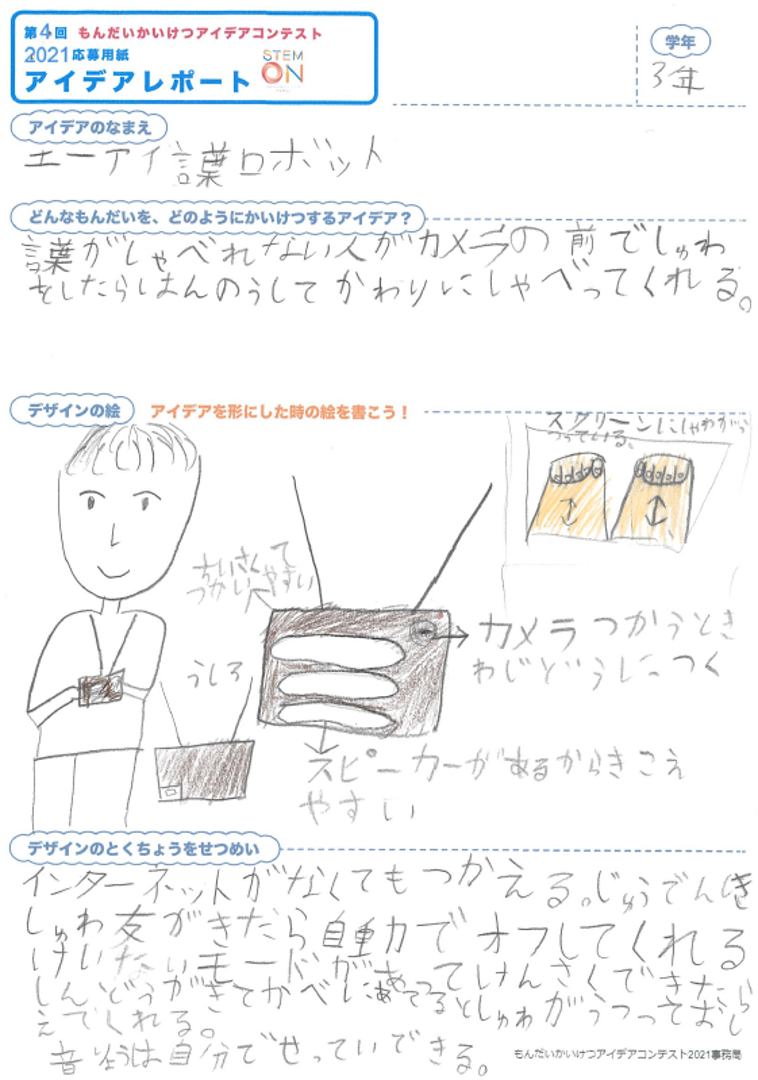 第4回 もんだいかいけつアイデアコンテスト
2021応募用紙
アイデアレポート
STEM ON
学年
3年
アイデアのなまえ
エーアイ言葉ロボット
どんなもんだいを、どのようにかいけつするアイデア？
言葉がしゃべれない人がカメラの前でしゅわ
をしたらはんのうしてかわりにしゃべってくれる。
デザインの絵
アイデアを形にした時の絵を書こう！
スクリーンにしゅわがう
つっている。
ちいさくて
つかいやすい
うしろ
カメラ つかうとき
わじどうにつく
スピーカーがあるからきこえ
やすい
デザインのとくちょうをせつめい
インターネットがなくてもつかえる。じゅうでん
しゅわ友がきたら自動力でオフしてくれる
けいたいモードがあってけんさくできたら
しんどうがきてかべにあてるとしゅわがうつっておし
えてくれる。
音りょうは自分でせっていできる。
もんだいかいけつアイデアコンテスト2021事務局